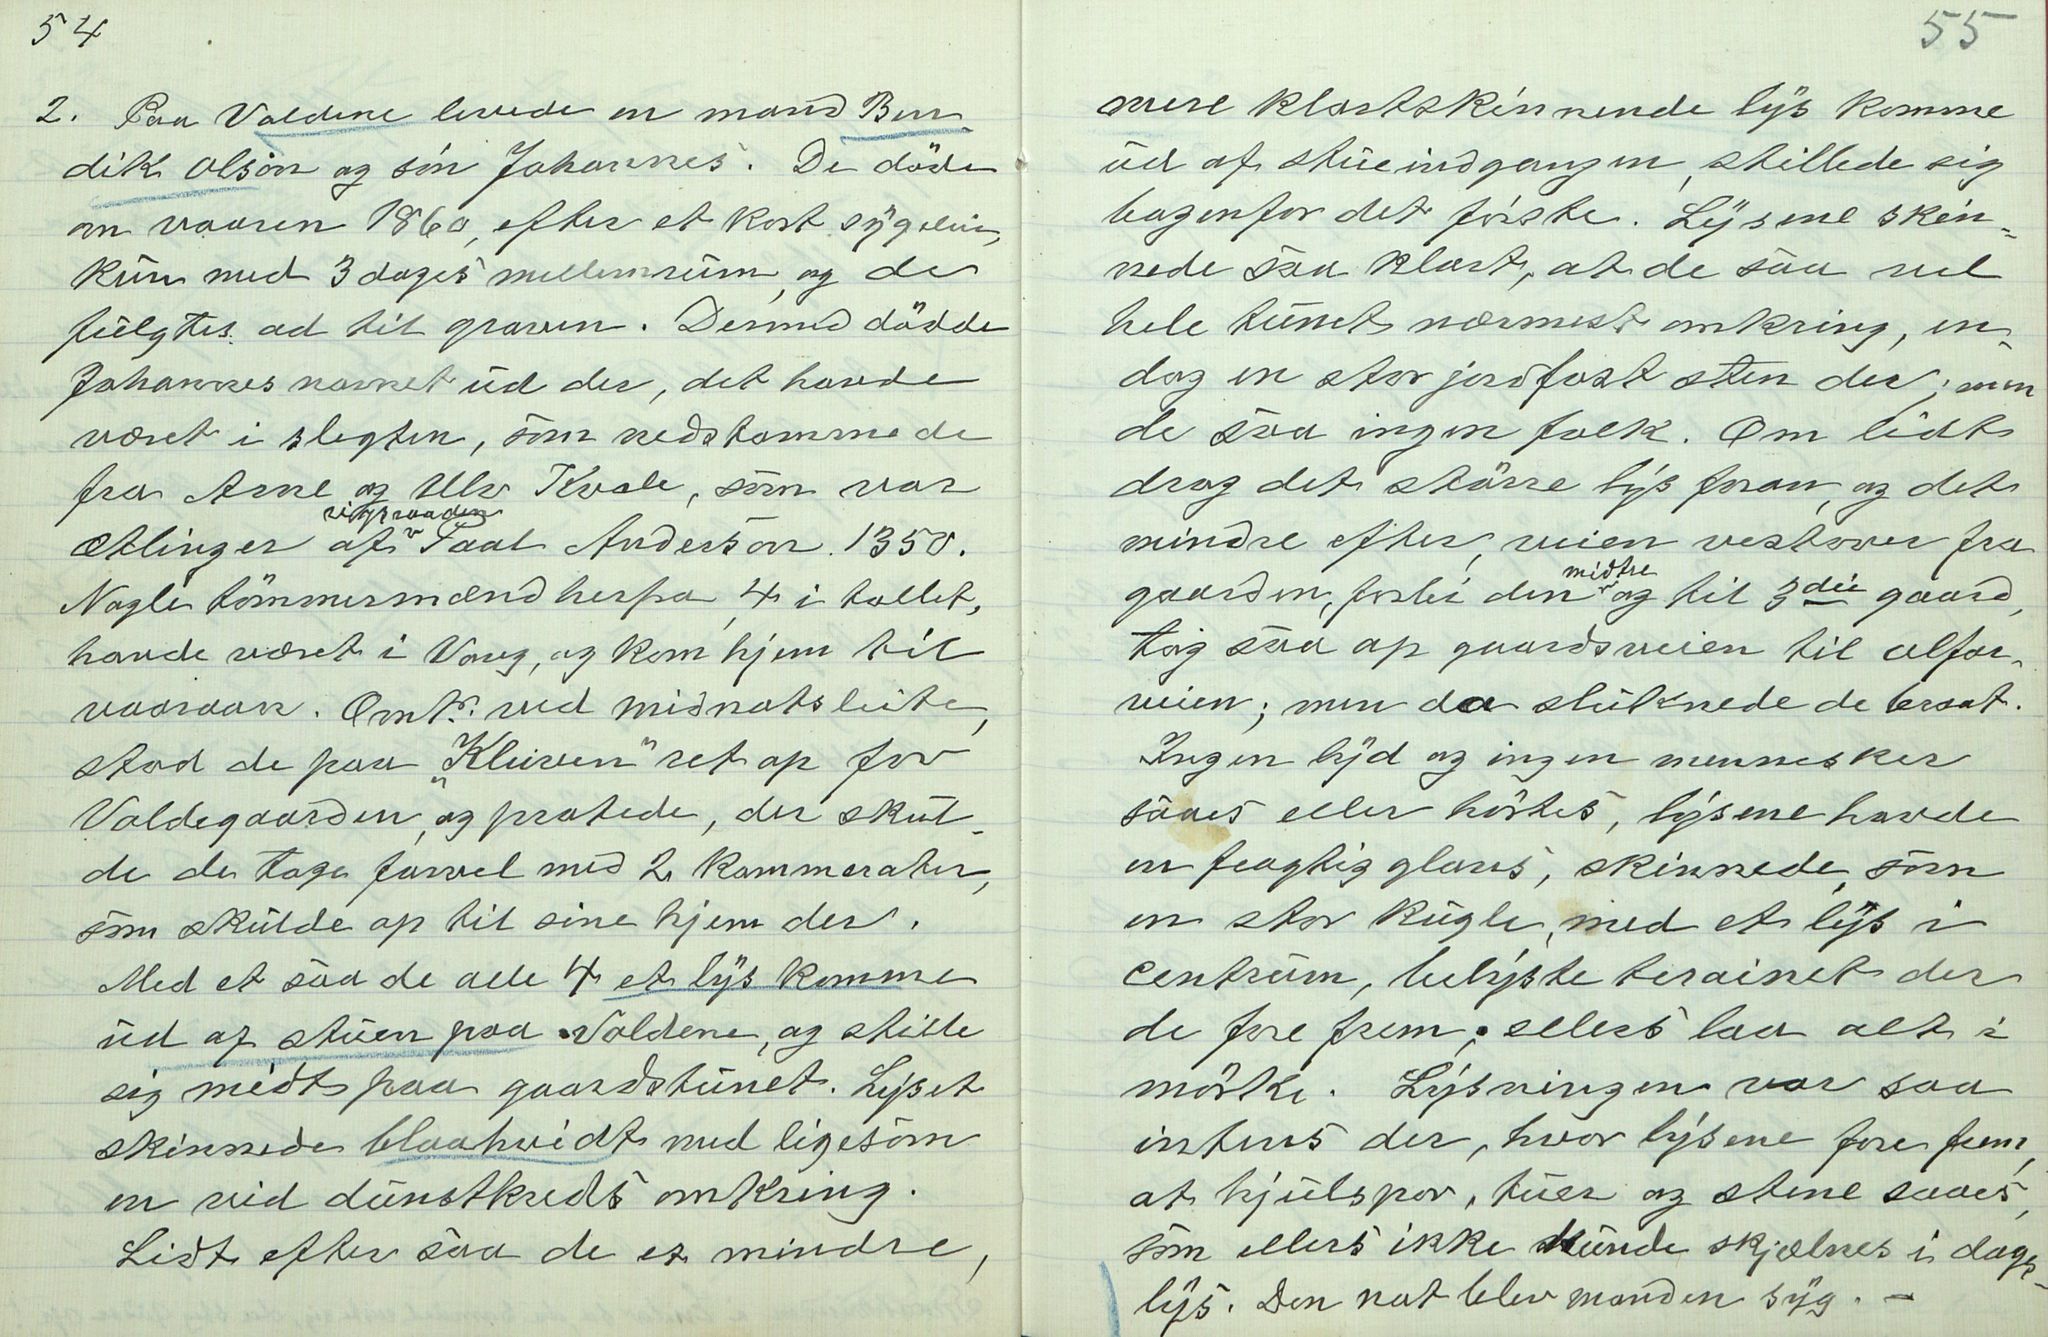 54
2. Paa Valdene levede en mand Ben-
dik Olson og sön Johannes. De döde
om vaaren 1860, efter et kort sygeleie,
kun med 3 dages mellemrum, og de
fulgtes ad til graven. Dermed dödde
Johannes navnet ud der, det havde
været i slegten, som nedstammede
fra Arne og Ulv Kvale, som var
rigsraaden
ætlinger af Paal Anderson. 1350.
Nogle tömmermænd herfra, 4 i tallet,
havde været i Vang, og kom hjem til
vaaraan. Omtr. ved midnatsleite,
stod de paa "Kleiven" ret op for
Valdegaarden, og pratede, der skul-
de de tage farvel med 2 kammerater,
som skulde op til sine hjem der.
Med et saa de alle 4 et lys komme
ud af stuen paa Valdene, og stille
sig midt paa gaardstunet. Lyset
skinnede blaahvidt med ligesom
en vid dunstkreds omkring.
Lidt efter saa de et mindre,
55
mere klartskinnende lys komme
ud af stueindgangen, stillede sig
bagenfor det förste. Lysene skin-
nede saa klart, at de saa vel
hele tunet nærmest omkring, en-
dog en stor jordfast sten der; men
de saa ingen folk. Om lidt
drog det större lys foran, og det
mindre efter, veien vestover fra
midtre
gaarden, forbi den og til 3die gaard,
tog saa op gaardsveien til alfar-
veien; men da sluknede de brat.
Ingen lyd og ingen mennesker
saaes eller hörtes, lysene havde
en pragtig glans, skinnede, som
en stor kugle, med et lys i
centrum, belyste terainet der
de fore frem; ellers laa alt i
mörke. Lysningen var saa
intens der, hvor lysene fore frem,
at hjulspor, tuer og stene saaes,
som ellers ikke kunde skjælnes i dags-
lys. Den nat blev manden syg. -